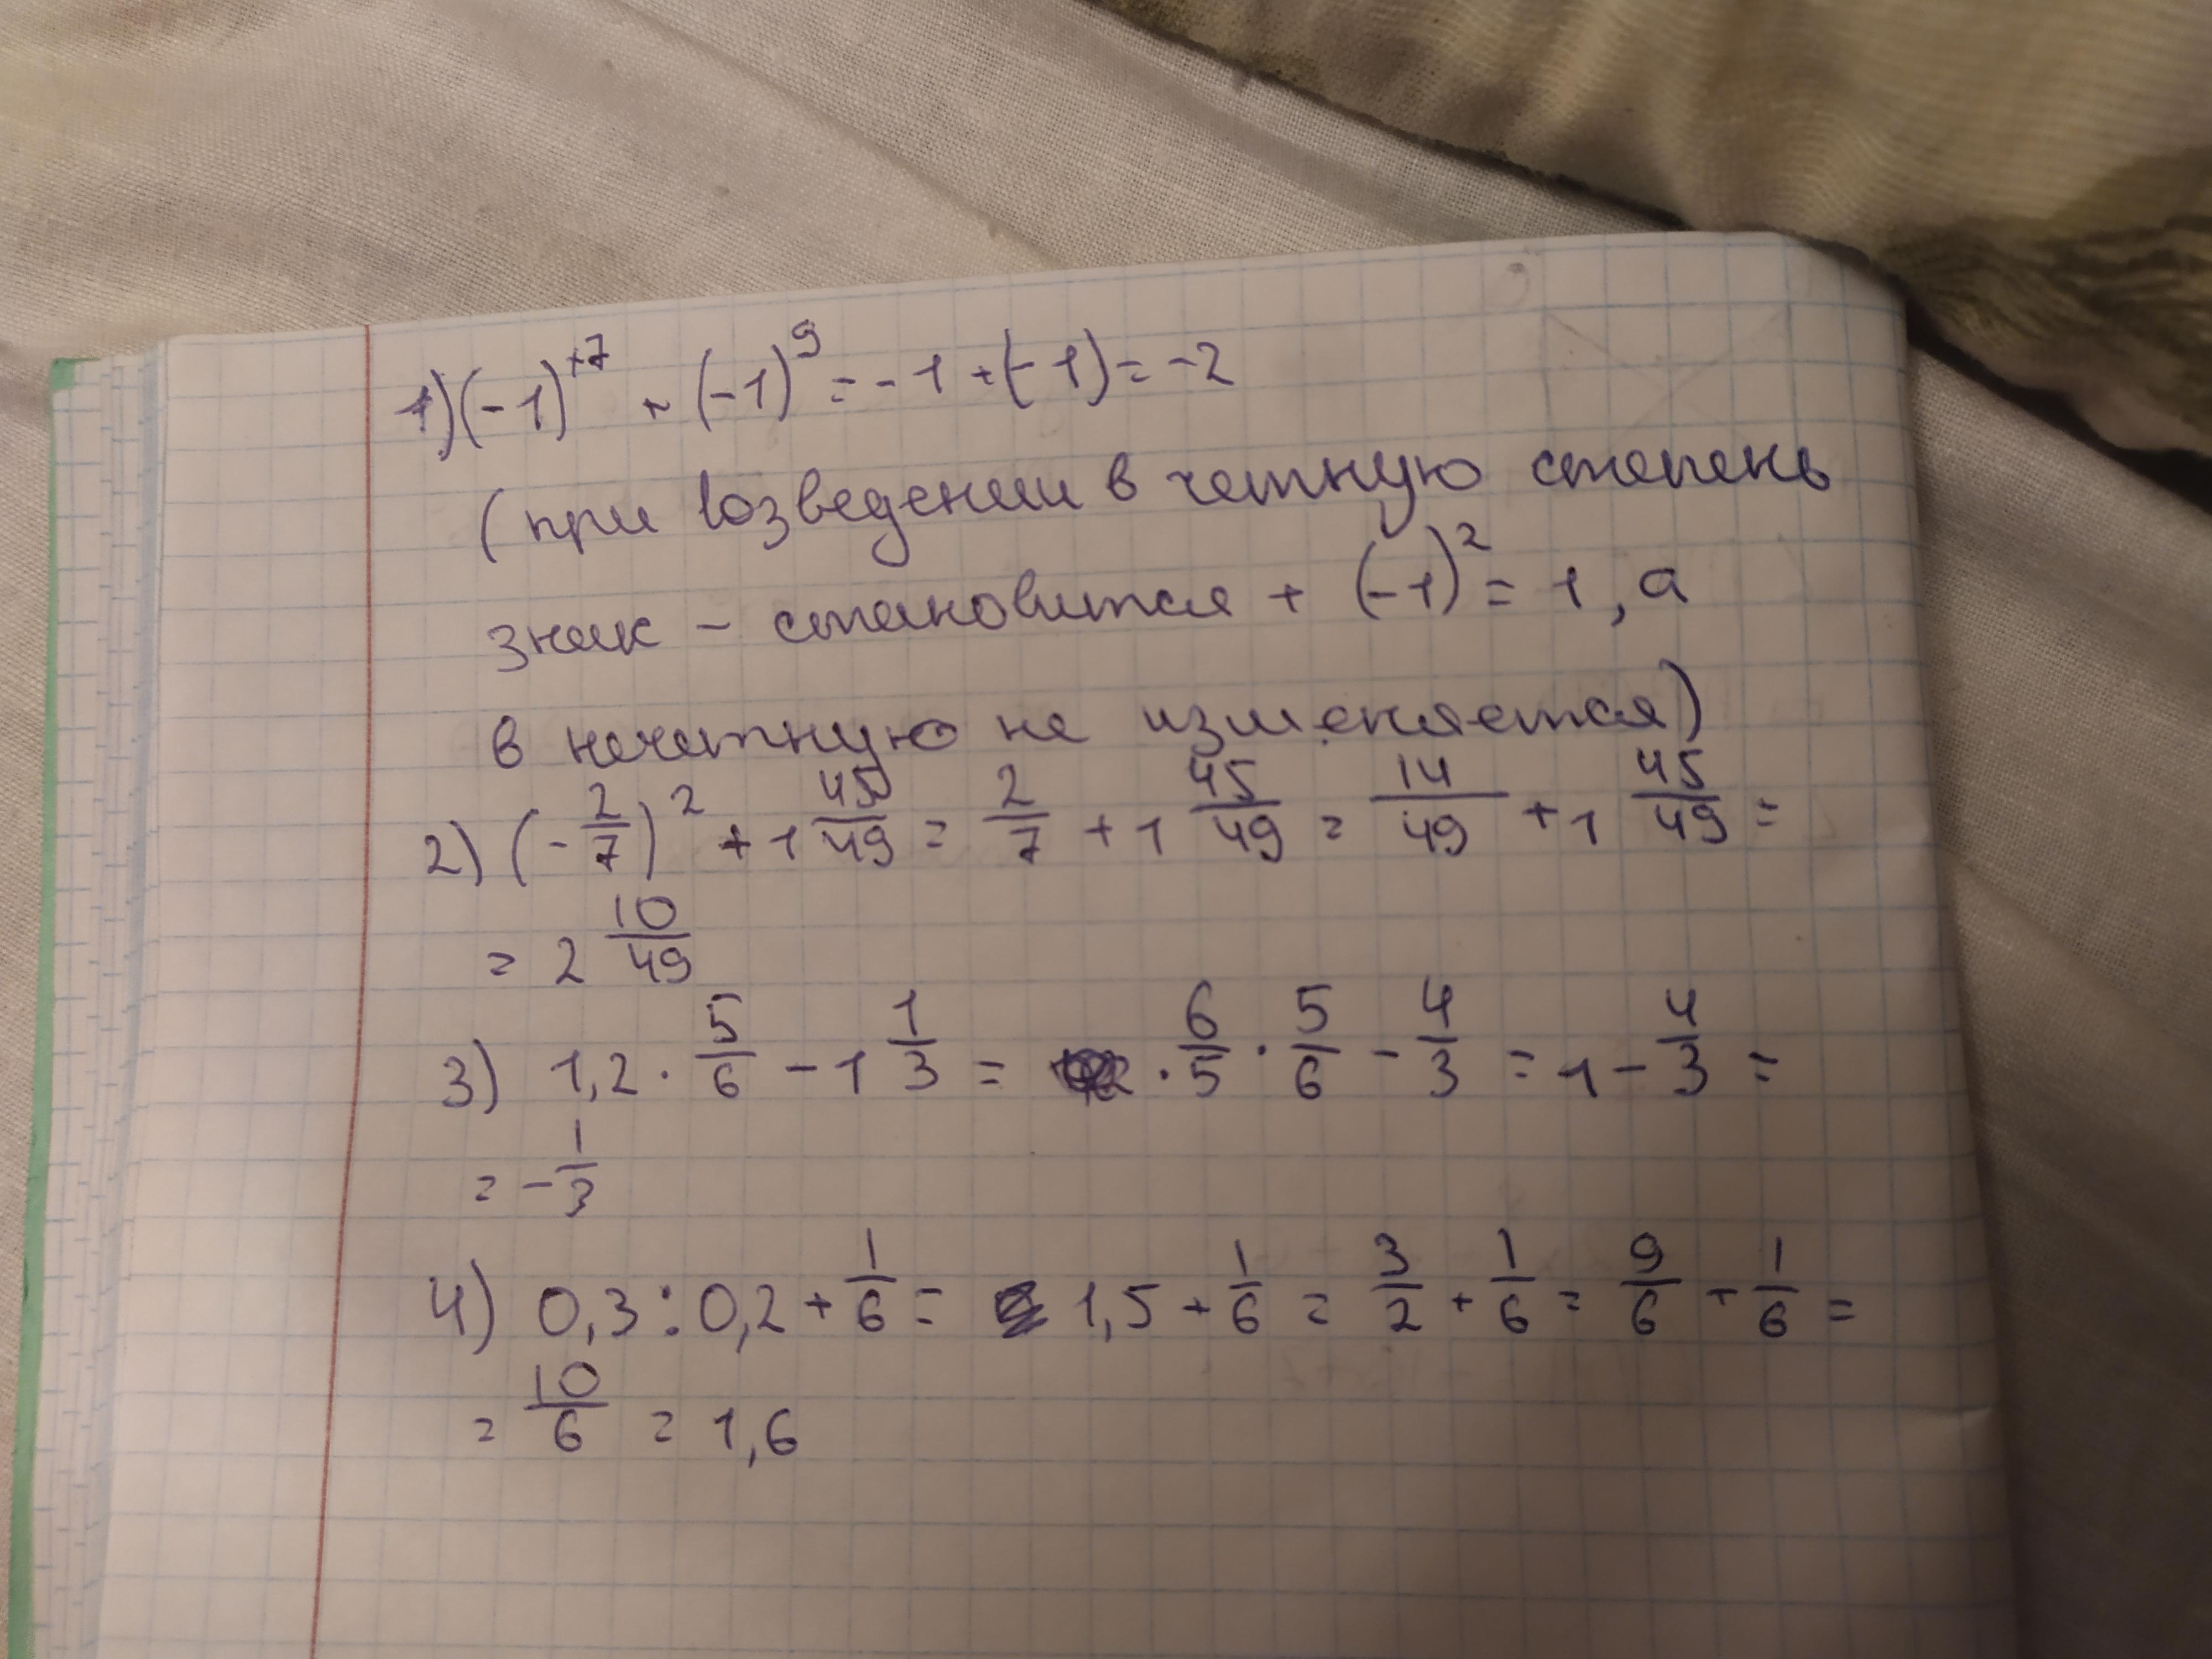 1) (-1)^{+7} + (-1)^9 = -1 + (-1) = -2
(при возведении в четную степень
знак - становится + (-1)^2 = 1, а
в нечетную не изменяется)
2) (-2/7)^2 + 1 45/49 = 2/7 + 1 45/49 = 14/49 + 1 45/49 =
= 2 10/49
3) 1,2 · 5/6 - 1 1/3 = · 6/5 · 5/6 - 4/3 = 1 - 4/3 =
= -1/3
4) 0,3 : 0,2 + 1/6 = 1,5 + 1/6 = 3/2 + 1/6 = 9/6 + 1/6 =
= 10/6 = 1,6